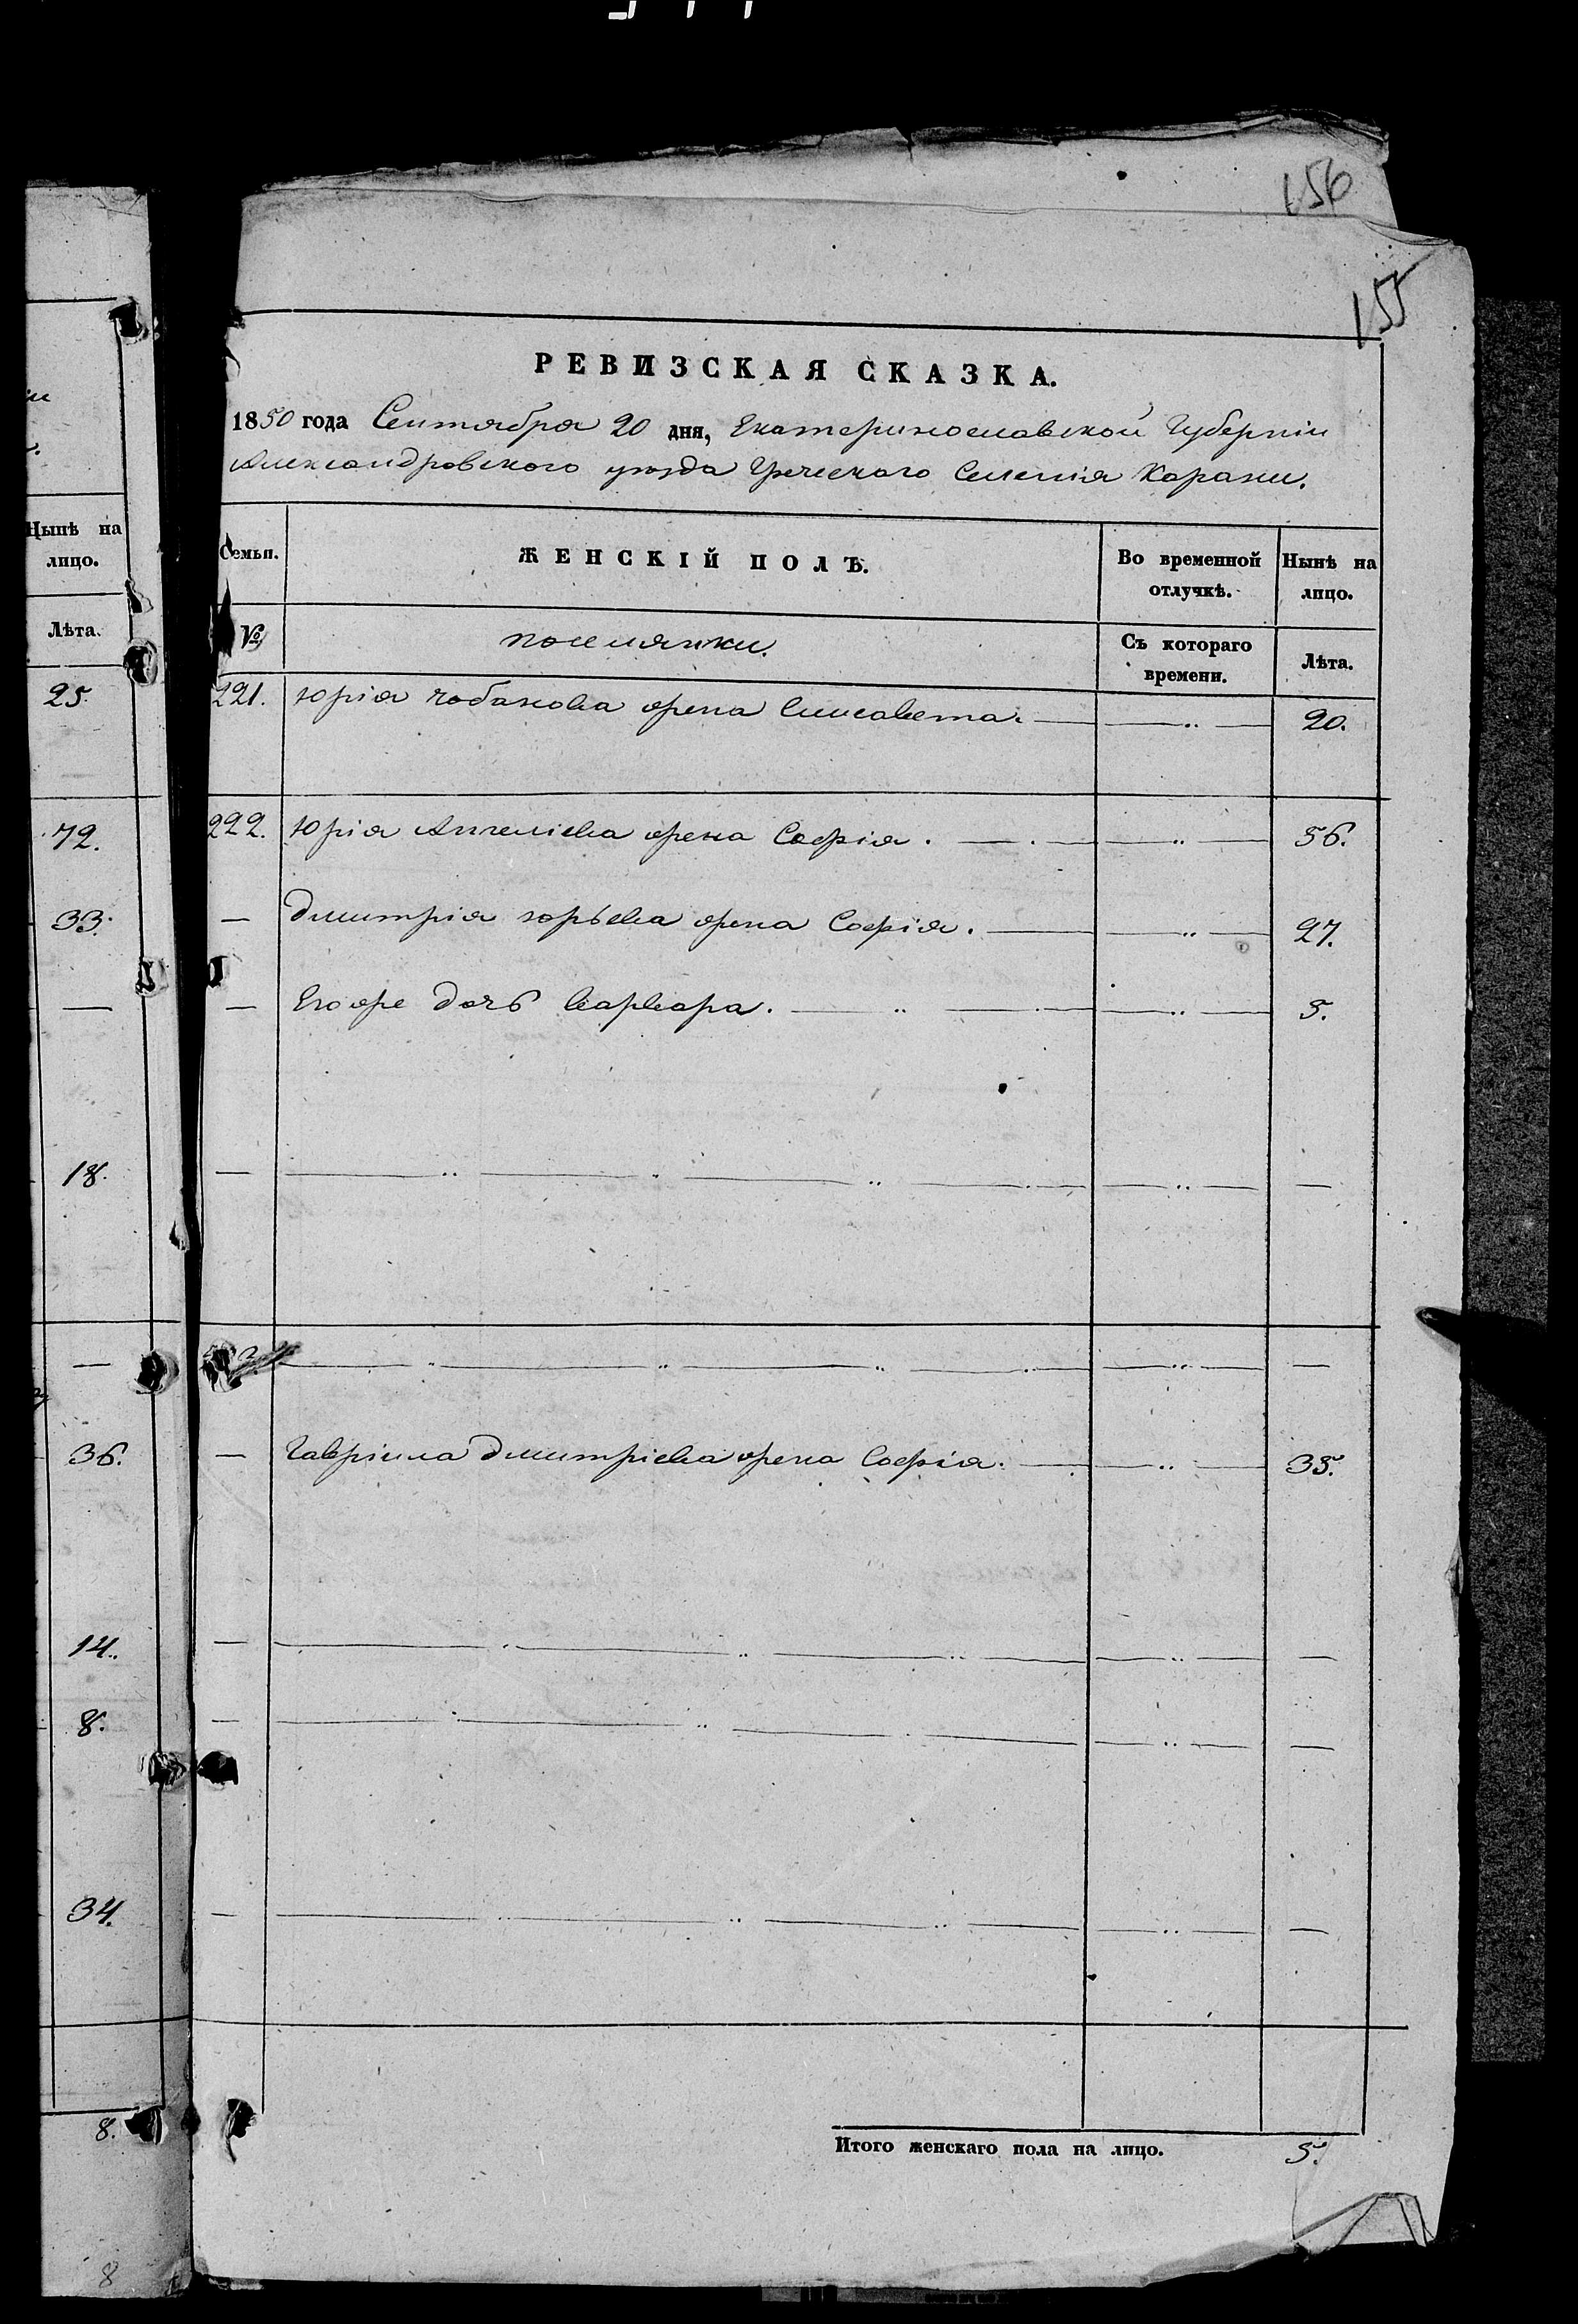 156
155
РЕВИЗСКАЯ СКАЗКА.
1850 года Сентября 20 дня, Екатеринославской Губерніи
Александровского уезда Греческого Селенія Карани.
Нынѣ на
лицо.
Лѣта.
25.
72.
33.
—
18.
—
36.
14.
8.
34.
8.
8
Семьи. ЖЕНСКІЙ ПОЛЪ. Во временной отлучкѣ. Нынѣ на лицо.
№ поселянки. Съ котораго времени. Лѣта.
221. Юрія Чобанова жена Елисавета. — 20.
222. Юрія Ангеліева жена Софія. — 56.
— Дмитрія Юрьева жена Софія. — 27.
— Его же дочь Варвара. — 5.
— — —
— —
— Гавріила Дмитріева жена Софія. — 35.
— — —
— — —
— — —
Итого женскаго пола на лицо. 5.